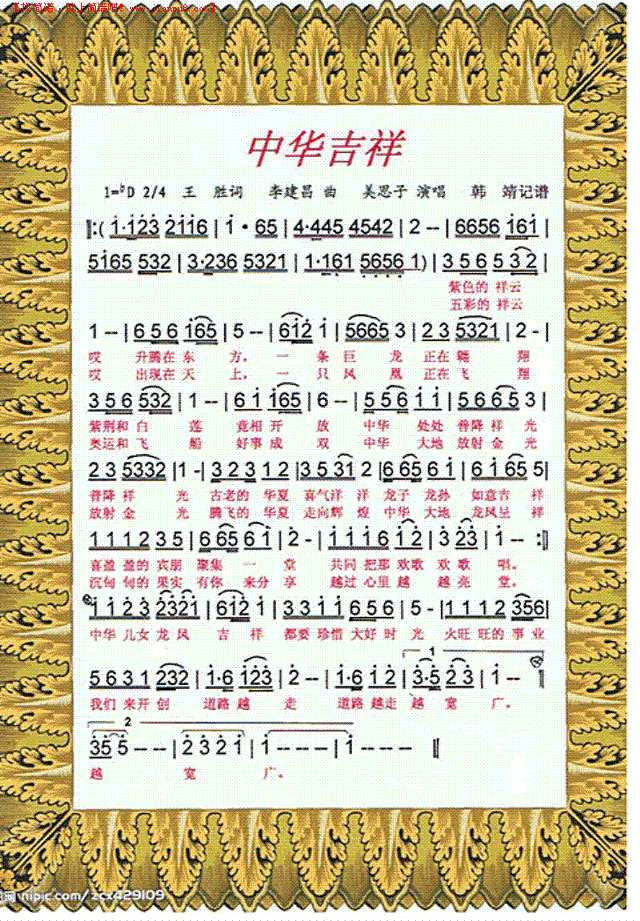 中华吉祥
1=♭D 2/4 王 胜词 李建昌 曲 美思子 演唱 韩 靖记谱
‖:( 1·123 2116 | 1 · 65 | 4·445 4542 | 2 -- | 6656 161 |
5165 532 | 3·236 5321 | 1·161 5656 1) | 3 5 6 5 3 2 |
紫色的 祥云
五彩的 祥云
1 -- | 6 5 6 165 | 5 -- | 612 1 | 5665 3 | 2 3 5321 | 2 - |
哎 升腾在 东 方， 一 条 巨 龙 正在 翱 翔
哎 出现在 天 上， 一 只 凤 凰 正在 飞 翔
3 5 6 532 | 1 -- | 6 1 165 | 5 -- | 5 5 6 1 1 | 5665 3 |
紫荆和 白 莲 竞相 开 放 中华 处处 普降 祥 光
奥运和 飞 船 好事 成 双 中华 大地 放射 金 光
2 3 5332 | 1 - | 3 2 3 1 2 | 3 5 31 2 | 6 65 6 1 | 6 165 5 |
普降 祥 光 古老的 华夏 喜气洋 洋 龙子 龙孙 如意吉 祥
放射 金 光 腾飞的 华夏 走向辉 煌 中华 大地 龙凤呈 祥
1 1 1 2 3 5 | 6 65 6 1 | 2 - | 1 1 1 6 1 2 | 3 23 | 1 -- :‖
喜盈 盈的 宾朋 聚集 一 堂 共同 把那 欢歌 欢 歌 唱。
沉甸 甸的 果实 有你 来分 享 越过 心里 越 越亮 堂。
1 1 2 3 2321 | 612 1 | 3 3 1 1 6 5 6 | 5 - | 1 1 1 2 356 |
中华 儿女 龙凤 吉 祥 都要 珍惜 大好 时 光 火旺 旺的 事业
5 6 3 1 232 | 1·6 123 | 2 -- | 1·6 1 2 | 3·5 2 3 | 1 -- ‖
1
我们 来开 创 道路 越 走 道路 越走 越 宽 广。
2
35 5 --- | 2 3 2 1 | 1 --- | 1 --- ‖
越 宽 广。
nipic.com/zcx429109